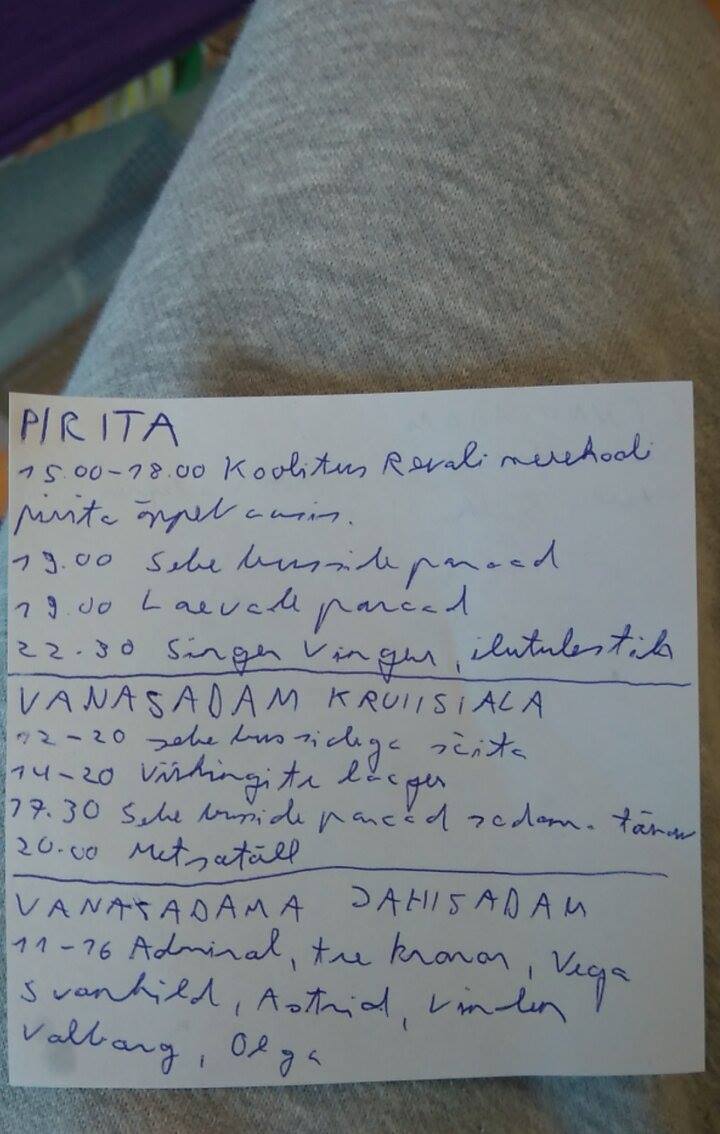 PIRITA
15.00-18.00 Koolitus Revali merekooli
pirita õppel
19.00 Sebe busside paraad
19.00 Laevade paraad
22.30 Singer Vinger, ilutulestik
VANASADAM KRUIISIALA
12-20 sebe bussidega sõita
14-20 Viikingite laager
17.30 Sebe busside paraad sadam.
20.00 Metsatöll
VANASADAMA JAHISADAM
11-16 Admiral, tre kronor, Vega
Svanhild, Astrid,
Valborg, Olga